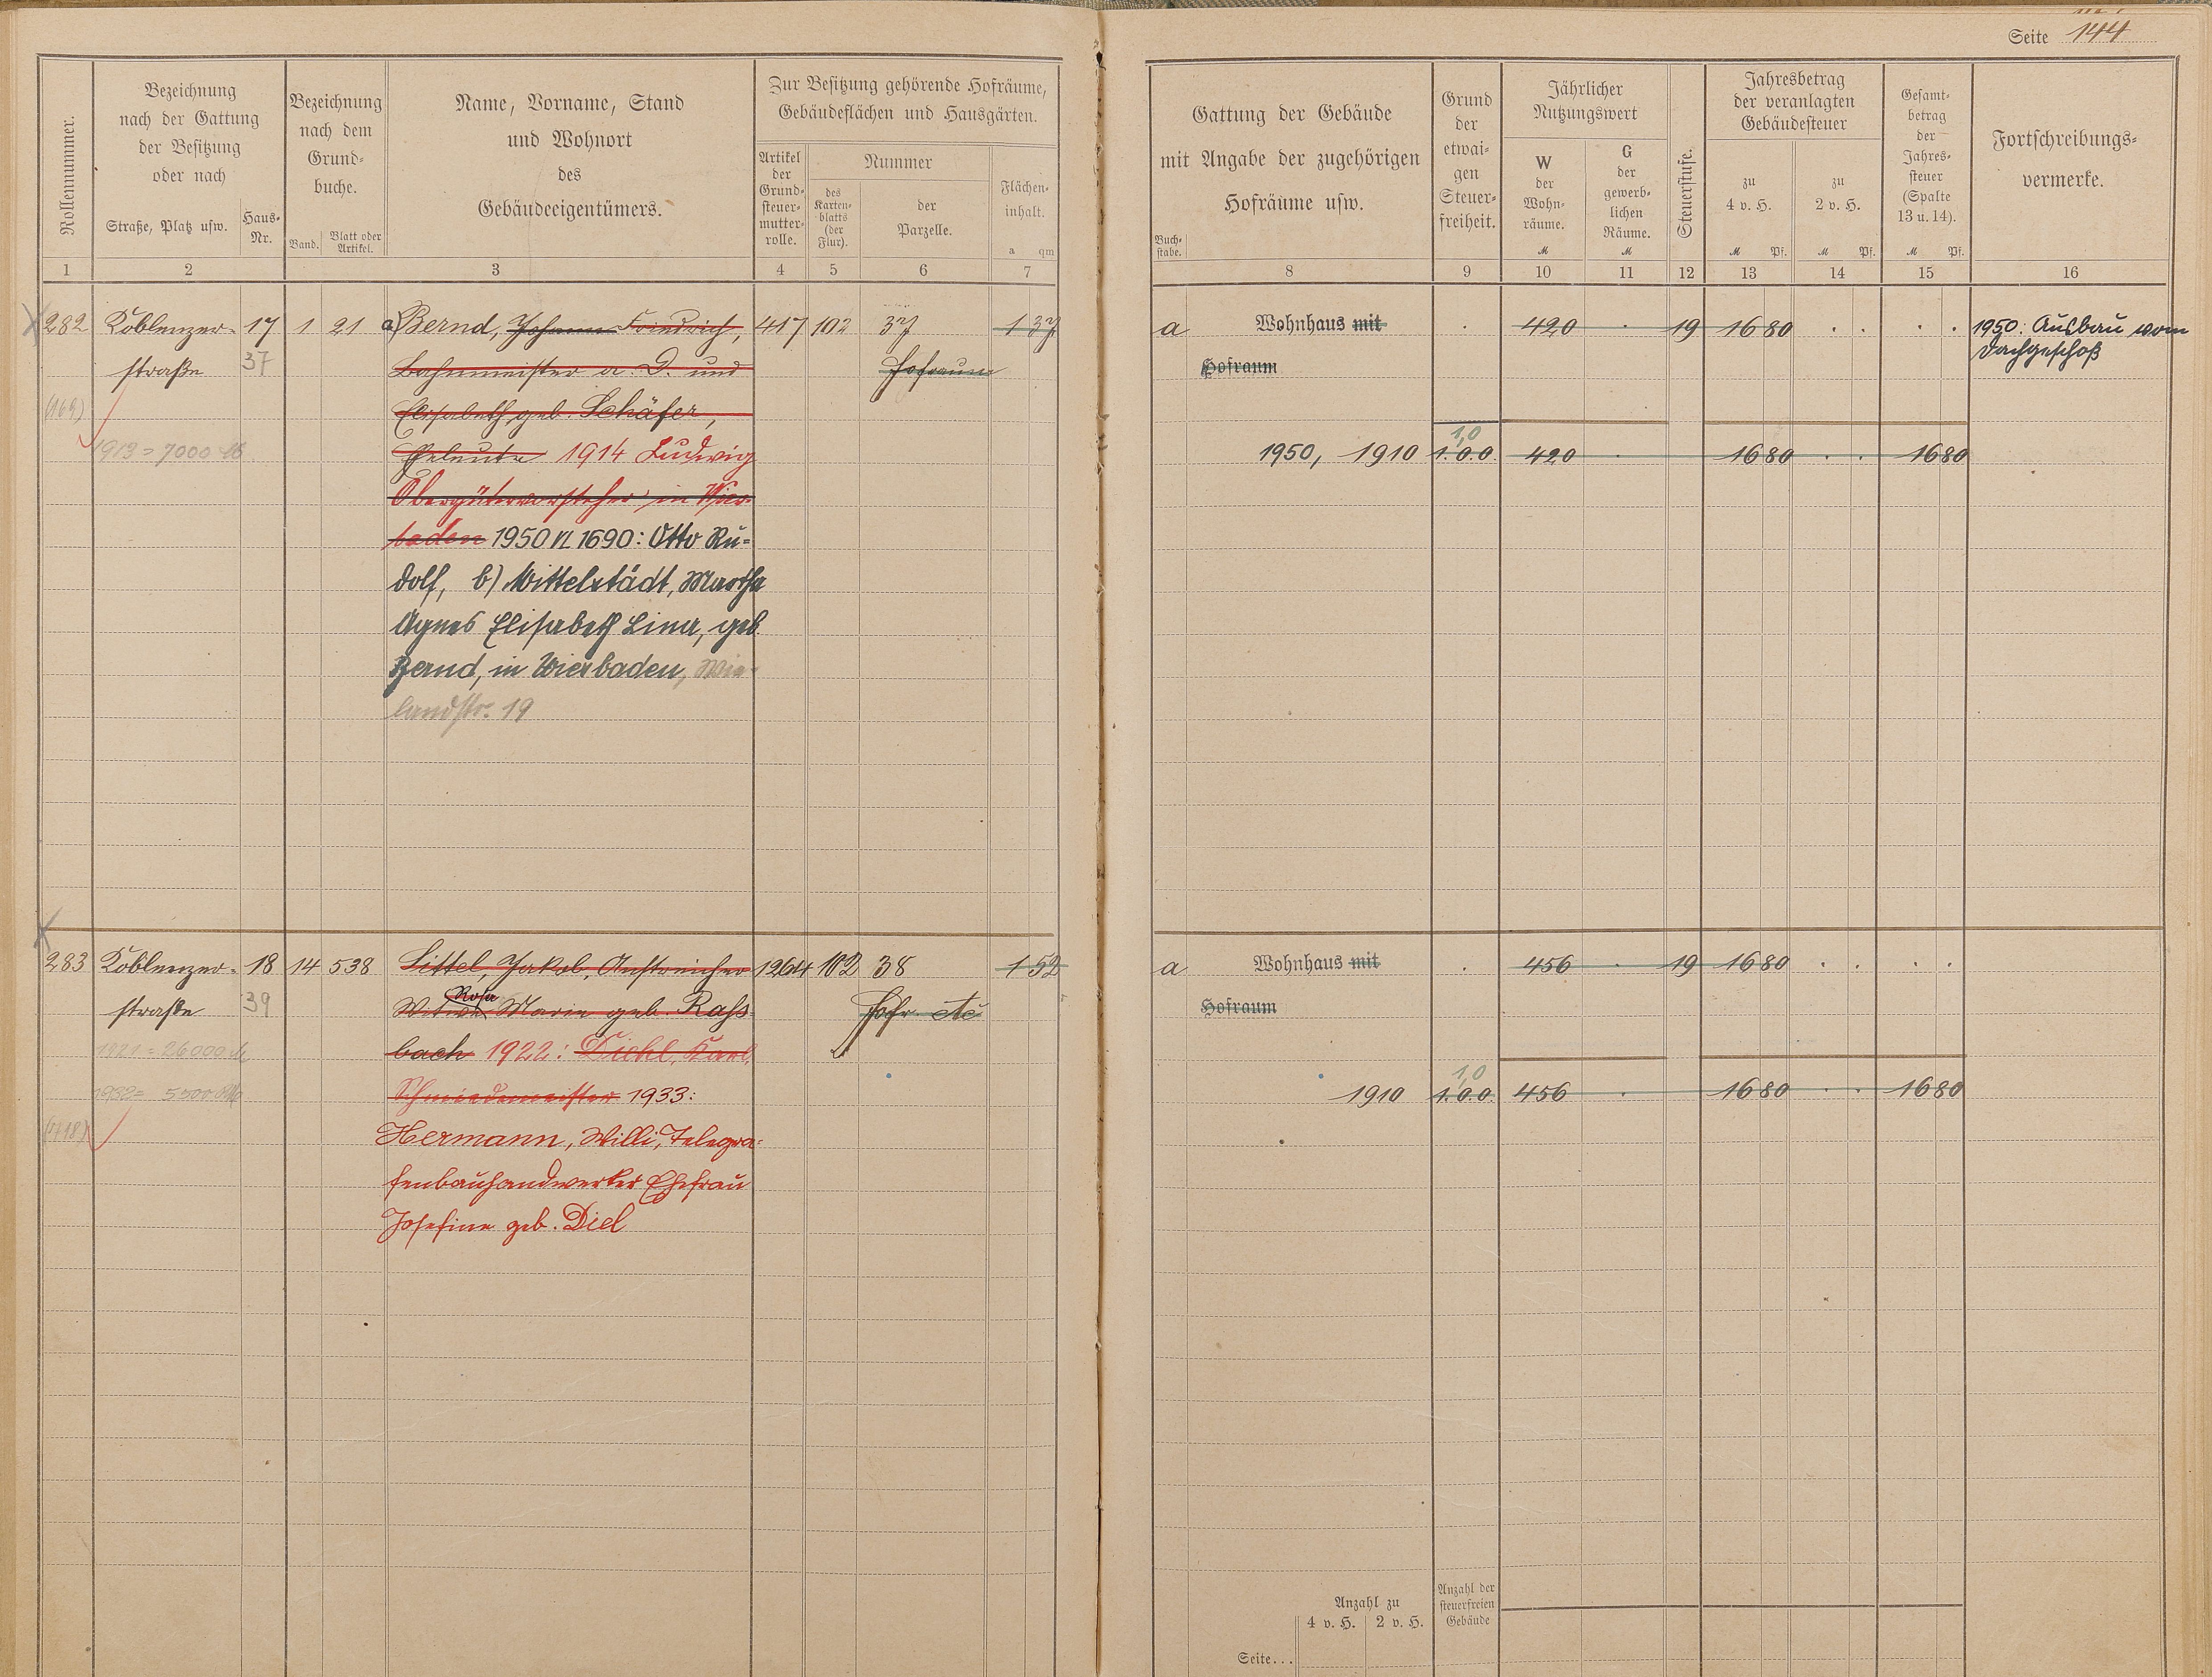 Seite 144
Rollennummer.
Bezeichnung
nach der Gattung
der Besitzung
oder nach
Straße, Platz usw.
Haus-
Nr.
Bezeichnung
nach dem
Grund-
buche.
Band.
Blatt oder
Artikel.
Name, Vorname, Stand
und Wohnort
des
Gebäudeeigentümers.
Zur Besitzung gehörende Hofräume,
Gebäudeflächen und Hausgärten.
Artikel
der
Grund-
steuer-
mutter-
rolle.
Nummer
des
Karten-
blatts
(der
Flur).
der
Parzelle.
Flächen-
inhalt.
a qm
Buch-
stabe.
Gattung der Gebäude
mit Angabe der zugehörigen
Hofräume usw.
Grund
der
etwai-
gen
Steuer-
freiheit.
Jährlicher
Nutzungswert
W
der
Wohn-
räume.
M
G
der
gewerb-
lichen
Räume.
M
Steuerstufe.
Jahresbetrag
der veranlagten
Gebäudesteuer
zu
4 v. H.
M Pf.
zu
2 v. H.
M Pf.
Gesamt-
betrag
der
Jahres-
steuer
(Spalte
13 u. 14).
M Pf.
Fortschreibungs-
vermerke.
1 2 3 4 5 6 7 8 9 10 11 12 13 14 15 16
282 Koblenzer- 17 1 21 a) Bernd, Johann Friedrich, 417 102 37 1 37 a Wohnhaus mit . 420 . 19 16 80 . . . . 1950: Ausbau vom
straße 37 Bahnmeister a. D. und Hofraum Hofraum Dachgeschoß
Elisabeth geb. Schäfer,
1913 = 7000 M Eheleute 1914 Ludwig 1950, 1910 1.0.0. 1,0 420 . 16 80 . . 16 80
Obergütervorsteher in Wies-
baden 1950 VI 1690: Otto Ru-
dolf, b) Mittelstädt, Martha
Agnes Elisabeth Lina, geb.
Bernd, in Wiesbaden, Wie-
landstr. 19
283 Koblenzer- 18 14 538 Littel, Jakob, Anstreicher 1264 102 38 1 52 a Wohnhaus mit . 456 . 19 16 80 . . . .
straße 39 Witwe Rosa Marie geb. Raß- Hofr. etc Hofraum
1921 = 26000 M bach 1922: Diehl, Karl,
1932 = 5500 RM Schmiedemeister 1933: 1910 1.0.0. 1,0 456 . 16 80 . . 16 80
Hermann, Willi, Telegra-
fenbauhandwerker Ehefrau
Josefine geb. Diel
Anzahl zu
4 v. H. 2 v. H.
Anzahl der
steuerfreien
Gebäude
Seite...